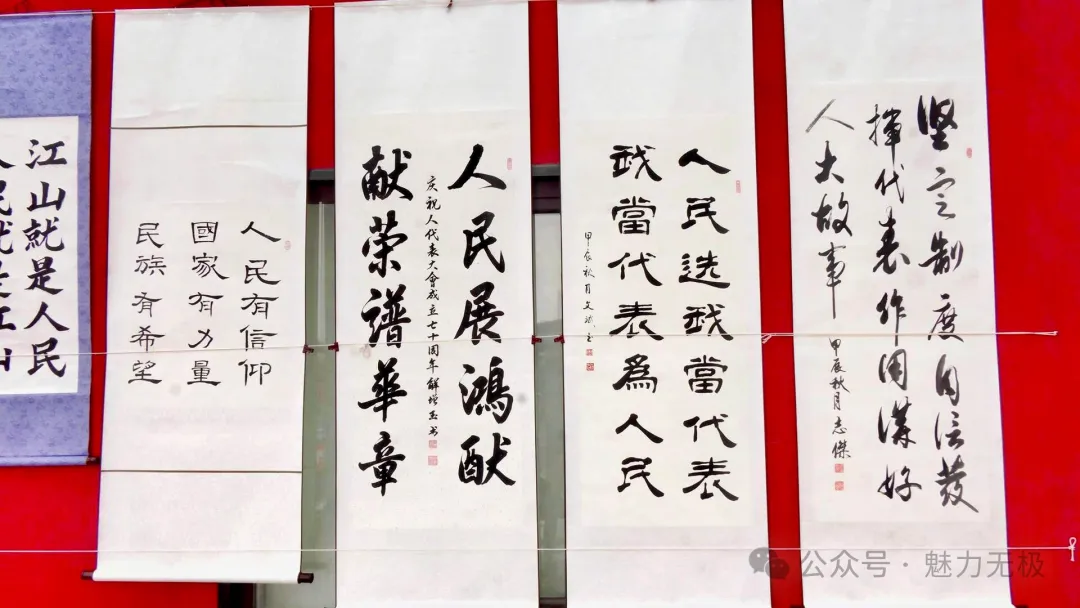 堅定制度自信發
揮代表作用講好
人大故事
甲辰秋月志傑
人民选我當代表
我當代表為人民
甲辰秋月文
人民展鴻猷
献荣譜華章
庆祝人代表大會成立七十周年解增玉书
人民有信仰
國家有力量
民族有希望
江山就是人民
人民就是江山
公众号·魅力无极